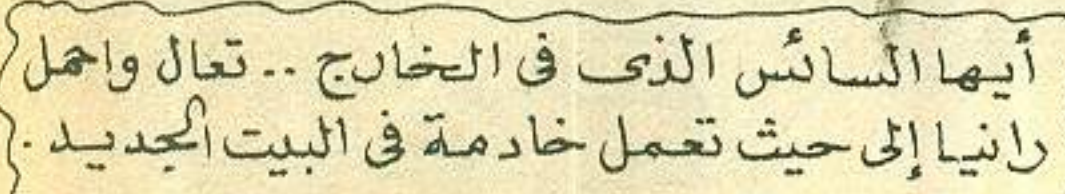 أيها السائس الذى فى الخارج .. تعال واحمل
رانيا إلى حيث تعمل خادمة فى البيت الجديد .